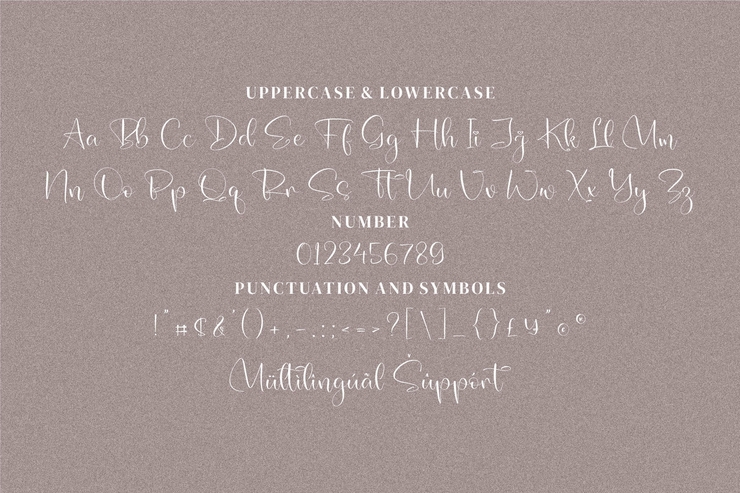 UPPERCASE & LOWERCASE
Aa Bb Cc Dd Ee Ff Gg Hh Ii Jj Kk Ll Mm
Nn Oo Pp Qq Rr Ss Tt Uu Vv Ww Xx Yy Zz
NUMBER
0123456789
PUNCTUATION AND SYMBOLS
!"#$&'()+,-.:;<=>?[\]_{}£¥"©®
Mültilingúàl Šùppórt